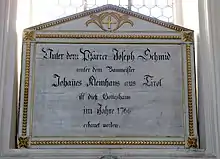 Unter dem Pfarrer Joseph Schmid
unter dem Baumeister
Johañes Klemhans aus Tirol
ist dises Gotteshaus
im Jahre 1766
erbauet worden.